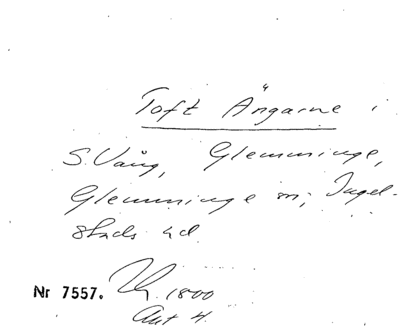 Toft Ängarne i
S. Vång, Glemminge,
Glemminge sn; Ingel-
stads hd.
Nr 7557. 1800
Akt 4.